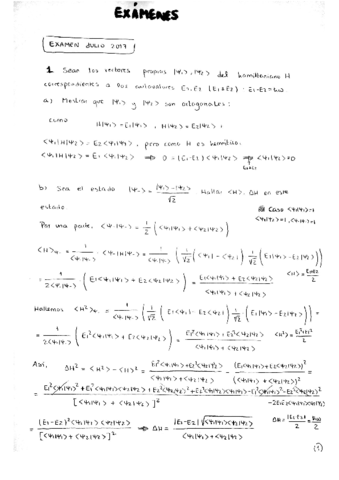 EXÁMENES
EXAMEN JULIO 2017
1. Sean los vectores propios |Ψ₁>, |Ψ₂> del hamiltoniano H
correspondientes a dos autovalores E₁, E₂ (E₁≠E₂) - E₁-E₂=ħω
a) Mostrar que |Ψ₁> y |Ψ₂> son ortogonales:
como H|Ψ₁> = E₁|Ψ₁>, H|Ψ₂> = E₂|Ψ₂>;
<Ψ₁|H|Ψ₂> = E₂<Ψ₁|Ψ₂>, pero como H es hermítico:
<Ψ₁|H|Ψ₂> = E₁<Ψ₁|Ψ₂> ⇒ 0 = (E₁-E₂)<Ψ₁|Ψ₂> ⇒ <Ψ₁|Ψ₂>=0
b) Sea el estado |Ψ₋> = (|Ψ₁>-|Ψ₂>)/√2 Hallar <H>, ΔH en este
estado. Caso <Ψ₁|Ψ₁>=1
Por una parte, <Ψ₋|Ψ₋> = 1/2 (<Ψ₁|Ψ₁> + <Ψ₂|Ψ₂>)
<H>₋ = 1/<Ψ₋|Ψ₋> <Ψ₋|H|Ψ₋> = 1/<Ψ₋|Ψ₋> (1/√2 (<Ψ₁|-<Ψ₂|) 1/√2 (E₁|Ψ₁>-E₂|Ψ₂>)) =
= 1/(2<Ψ₋|Ψ₋>) (E₁<Ψ₁|Ψ₁> + E₂<Ψ₂|Ψ₂>) = (E₁<Ψ₁|Ψ₁> + E₂<Ψ₂|Ψ₂>)/(<Ψ₁|Ψ₁> + <Ψ₂|Ψ₂>) <H> = (E₁+E₂)/2
Hallamos <H²>₋ = 1/<Ψ₋|Ψ₋> (1/√2 (E₁<Ψ₁|-E₂<Ψ₂|) 1/√2 (E₁|Ψ₁>-E₂|Ψ₂>)) =
= 1/(2<Ψ₋|Ψ₋>) (E₁²<Ψ₁|Ψ₁> + E₂²<Ψ₂|Ψ₂>) = (E₁²<Ψ₁|Ψ₁> + E₂²<Ψ₂|Ψ₂>)/(<Ψ₁|Ψ₁> + <Ψ₂|Ψ₂>) <H²> = (E₁²+E₂²)/2
Así, ΔH² = <H²> - <H>² = (E₁²<Ψ₁|Ψ₁> + E₂²<Ψ₂|Ψ₂>)/(<Ψ₁|Ψ₁> + <Ψ₂|Ψ₂>) - (E₁<Ψ₁|Ψ₁> + E₂<Ψ₂|Ψ₂>)²/(<Ψ₁|Ψ₁> + <Ψ₂|Ψ₂>)² =
= (E₁-E₂)²<Ψ₁|Ψ₁><Ψ₂|Ψ₂>/[<Ψ₁|Ψ₁> + <Ψ₂|Ψ₂>]² ⇒ ΔH = |E₁-E₂|√<Ψ₁|Ψ₁><Ψ₂|Ψ₂>/(<Ψ₁|Ψ₁> + <Ψ₂|Ψ₂>) ΔH = |E₁-E₂|/2 = ħω/2
(1)